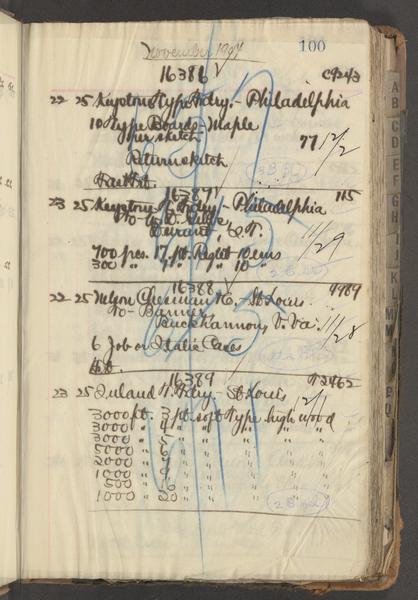 November 1907 100
16386 C9243
22 25 Keystone Type Fdry. - Philadelphia
10 Type Boards - Maple
per sketch 77 12/2
Return sketch
Fast Frt.
16387 115
23 25 Keystone T. Fdry. - Philadelphia
To-
Durant, O.T. 11/29
700 pcs. 17 ft. Reglet 10 ems
300 " " " 10 "
16388 9989
22 25 Nelson Chesman Co. - St Louis.
To- Banner
Buckhannon, W. Va. 11/28
6 Job or Italic Cases
16389 92465
23 25 Inland T. Fdry. - St Louis 2/1
3000 ft. 3 pt. soft type high wood
3000 " 4 " " " " "
3000 " 5 " " " " "
5000 " 6 " " " " "
2000 " " " " " "
1000 " " " " " "
500 " " " " " "
1000 " 20 " " " " "
A
B
C
D
E
F
G
H
I
J
K
L
M